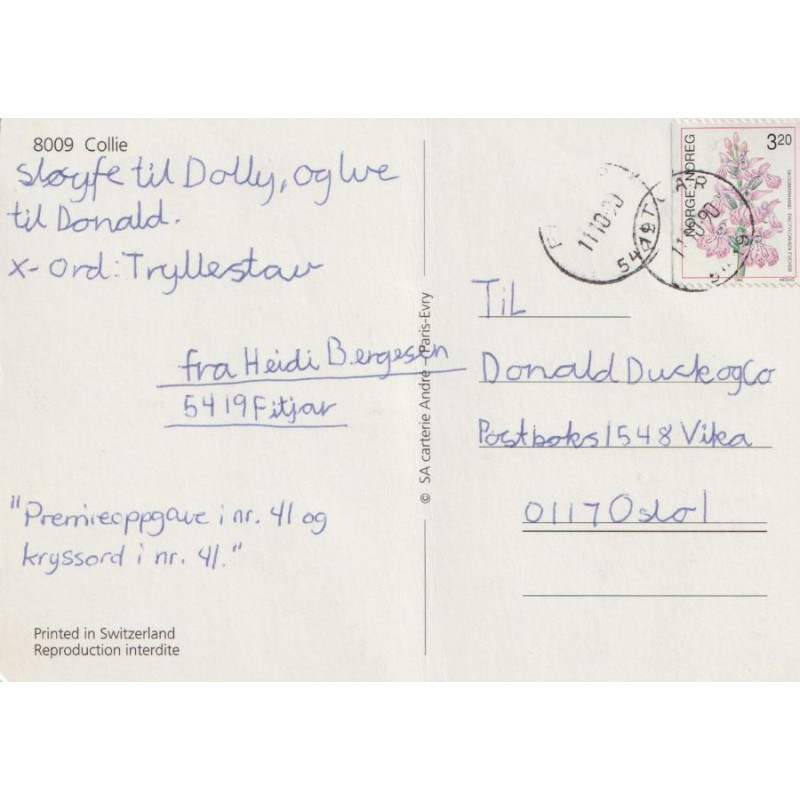 8009 Collie
sløyfe til Dolly, og lue
til Donald.
x-ord: Tryllestav
fra Heidi Bergesen
5419 Fitjar
"Premieoppgave i nr. 41 og
kryssord i nr. 41."
Printed in Switzerland
Reproduction interdite
© SA carterie André - Paris-Evry
NORGE·NOREG
320
11.10.90
5419
11.10.90
Til
Donald Duck og Co
Postboks 1548 Vika
0117 Oslo 1